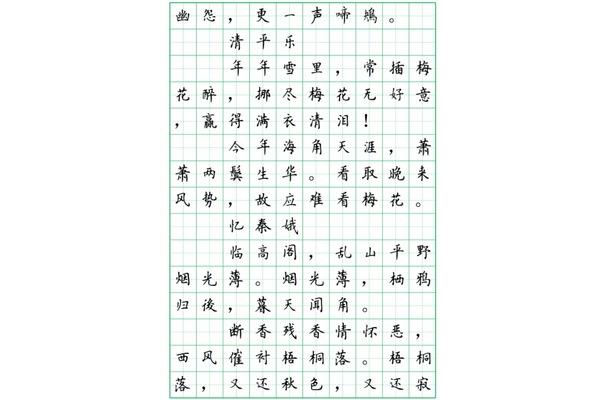 幽怨，更一声啼鴂。
清平乐
年年雪里，常插梅
花醉，挪尽梅花无好意
，赢得满衣清泪！
今年海角天涯，萧
萧两鬓生华。看取晚来
风势，故应难看梅花。
忆秦娥
临高阁，乱山平野
烟光薄。烟光薄，栖鸦
归後，暮天闻角。
断香残香情怀恶，
西风催衬梧桐落。梧桐
落，又还秋色，又还寂